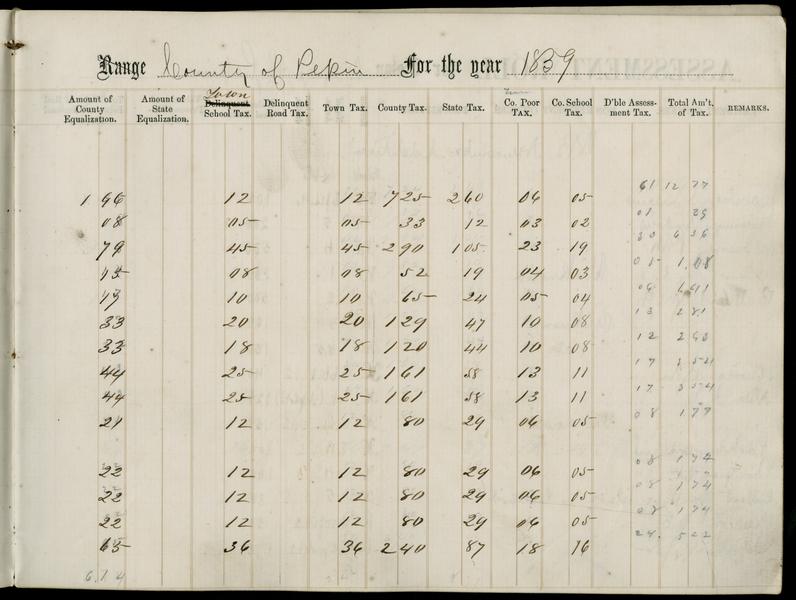 Range County of Pepin For the year 1859
Amount of County Equalization. Amount of State Equalization. Town Delinquent School Tax. Delinquent Road Tax. Town Tax. County Tax. State Tax. Co. Poor TAX. Co. School Tax. D'ble Assessment Tax. Total Am't. of Tax. REMARKS.
1 96 12 12 725 260 06 05 61 12 77
08 05 05 33 12 03 02 01
79 45 45 290 105 23 19 6 36
15 08 08 52 19 04 03 05 1,08
19 10 10 65 24 05 04 06
33 20 20 129 47 10 08 13 281
33 18 18 120 44 10 08 12 263
44 25 25 161 58 13 11 17 354
44 25 25 161 58 13 11 17 354
21 12 12 80 29 06 05 08 177
22 12 12 80 29 06 05 08 174
22 12 12 80 29 06 05 08 174
22 12 12 80 29 06 05 08 174
65 36 36 240 87 18 16 24. 522
6.14